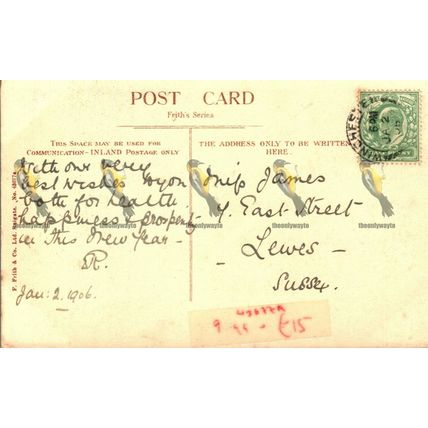 POST CARD
Frith's Series
THIS SPACE MAY BE USED FOR
COMMUNICATION—INLAND POSTAGE ONLY
With our very
best wishes to you
both for health
happiness & prosperity
in this New Year—
R.
Jan: 2. 1906.
THE ADDRESS ONLY TO BE WRITTEN
HERE.
Miss James
7. East Street
Lewes —
Sussex.
WINCHESTER
JA 2
F. Frith & Co., Ltd., Reigate.
£15
theonlywayto
theonlywayto
theonlywayto
theonlywayto